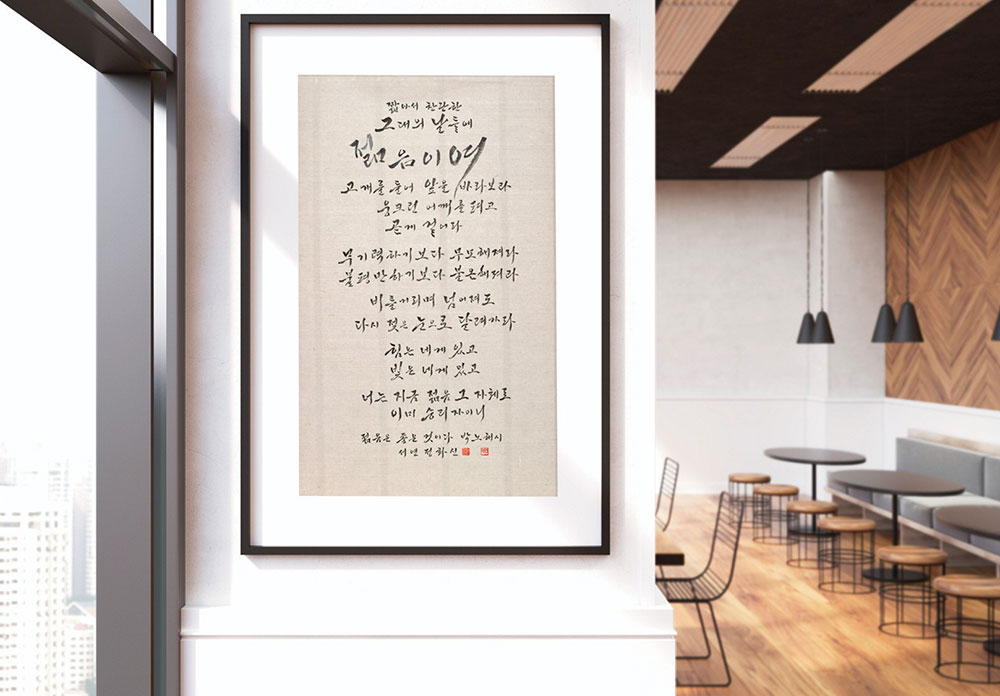 짧아서 찬란한
그대의 날들에
젊음이여
고개를 들어 앞을 바라보라
웅크린 어깨를 펴고
곧게 걸어라
무기력하기보다 무모해져라
불평만하기보다 불온해져라
비틀거리며 넘어져도
다시 젖은 눈으로 달려가라
힘은 네게 있고
빛은 네게 있고
너는 지금 젊음 그 자체로
이미 승리자이니
젊음은 좋은 것이다 박노해시
서연 정화신